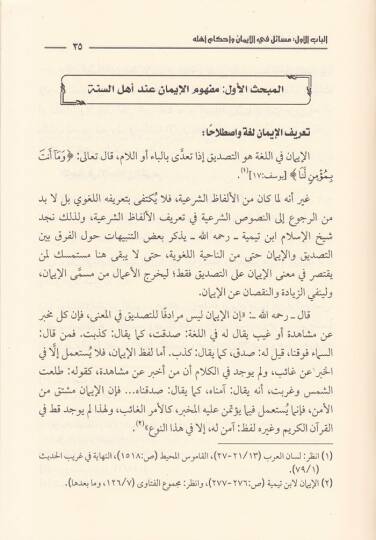 الباب الأول: مسائل في الإيمان وأحكام أهله
٣٥
المبحث الأول: مفهوم الإيمان عند أهل السنة
تعريف الإيمان لغة واصطلاحًا:
الإيمان في اللغة هو التصديق إذا تعدَّى بالباء أو اللام، قال تعالى: ﴿وَمَا أَنتَ
بِمُؤْمِنٍ لَّنَا﴾ [يوسف:١٧](١).
غير أنه لما كان من الألفاظ الشرعية، فلا يُكتفى بتعريفه اللغوي بل لا بد
من الرجوع إلى النصوص الشرعية في تعريف الألفاظ الشرعية، ولذلك نجد
شيخ الإسلام ابن تيمية ـ رحمه الله ـ يذكر بعض التنبيهات حول الفرق بين
التصديق والإيمان حتى من الناحية اللغوية، حتى لا يبقى هنا مستمسك لمن
يقتصر في معنى الإيمان على التصديق فقط؛ ليخرج الأعمال من مسمَّى الإيمان،
ولينفي الزيادة والنقصان عن الإيمان.
قال ـ رحمه الله ـ: «إن الإيمان ليس مرادفًا للتصديق في المعنى، فإن كل مخبر
عن مشاهدة أو غيب يقال له في اللغة: صدقت، كما يقال: كذبت. فمن قال:
السماء فوقنا، قيل له: صدق، كما يقال: كذب. أما لفظ الإيمان، فلا يُستعمل إلَّا في
الخبر عن غائب، ولم يوجد في الكلام أن من أخبر عن مشاهدة، كقوله: طلعت
الشمس وغربت، أنه يقال: آمناه، كما يقال: صدقناه... فإن الإيمان مشتق من
الأمن، فإنما يُستعمل فيما يؤتمن عليه المخبر، كالأمر الغائب، ولهذا لم يوجد قط في
القرآن الكريم وغيره لفظ: آمن له، إلا في هذا النوع»(٢).
(١) انظر: لسان العرب (٢١/١٣-٢٧)، القاموس المحيط (ص:١٥١٨)، النهاية في غريب الحديث
(٧٩/١).
(٢) الإيمان لابن تيمية (ص:٢٧٦-٢٧٧)، وانظر: مجموع الفتاوى (١٢٦/٧، وما بعدها).